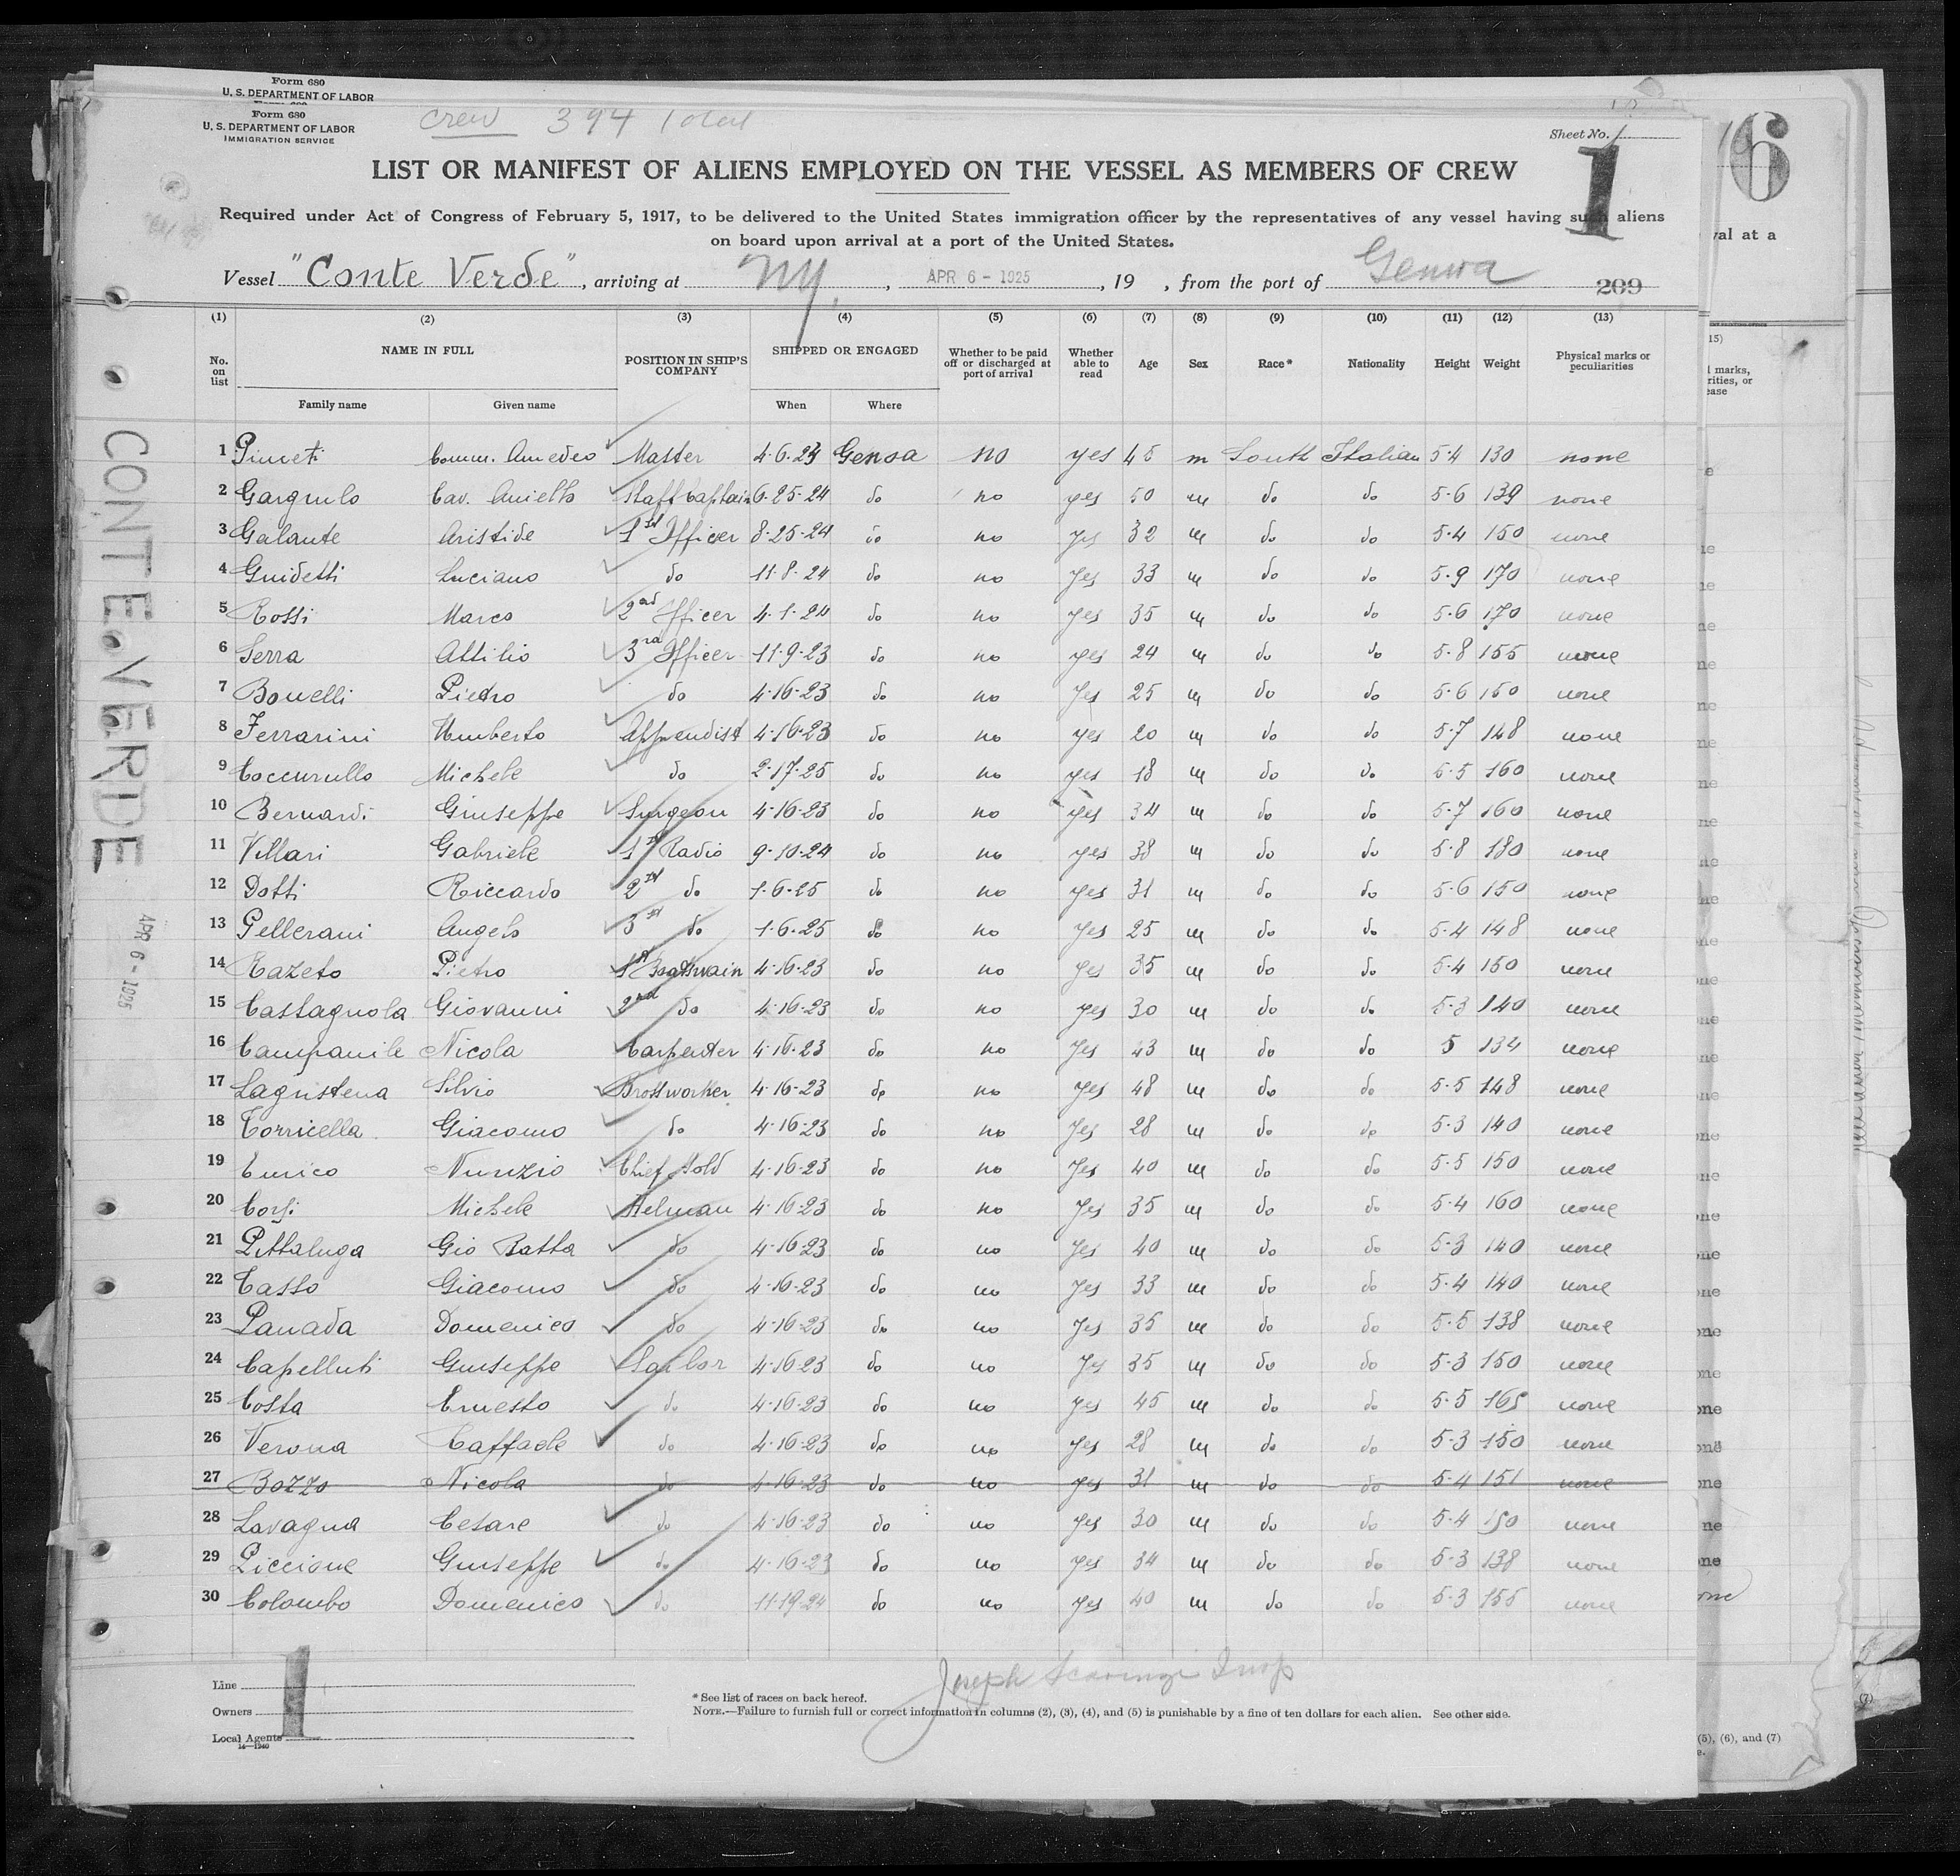 Form 680
U. S. DEPARTMENT OF LABOR
Form 680
U. S. DEPARTMENT OF LABOR
IMMIGRATION SERVICE
Crew 394 Total
Sheet No. 1
1
6
LIST OR MANIFEST OF ALIENS EMPLOYED ON THE VESSEL AS MEMBERS OF CREW
Required under Act of Congress of February 5, 1917, to be delivered to the United States immigration officer by the representatives of any vessel having such aliens
on board upon arrival at a port of the United States.
val at a
Vessel "Conte Verde", arriving at NY, APR 6 - 1925, 19 , from the port of Genoa
209
(1) (2) (3) (4) (5) (6) (7) (8) (9) (10) (11) (12) (13)
No. on list NAME IN FULL POSITION IN SHIP'S COMPANY SHIPPED OR ENGAGED Whether to be paid off or discharged at port of arrival Whether able to read Age Sex Race* Nationality Height Weight Physical marks or peculiarities
Family name Given name When Where
1 Comm. Amedeo Master 4-6-23 Genoa no yes 45 m South Italian 5-4 130 none
2 Gargiulo Cav. Aniello Staff Captain 6-25-24 do no yes 50 m do do 5-6 139 none
3 Galante Aristide 1st Officer 8-25-24 do no yes 32 m do do 5-4 150 none
4 Guidetti Luciano do 11-8-24 do no yes 33 m do do 5-9 170 none
5 Rossi Marco 2nd Officer 4-1-24 do no yes 35 m do do 5-6 170 none
6 Serra Attilio 3rd Officer 11-9-23 do no yes 24 m do do 5-8 155 none
7 Bonelli Pietro do 4-16-23 do no yes 25 m do do 5-6 160 none
8 Ferrarini Umberto Apprendist 4-16-23 do no yes 20 m do do 5-7 148 none
9 Coccurullo Michele do 2-17-25 do no yes 18 m do do 5-5 160 none
10 Bernardi Giuseppe Surgeon 4-16-23 do no yes 34 m do do 5-7 160 none
11 Villari Gabriele 1st Radio 9-10-24 do no yes 38 m do do 5-8 180 none
12 Dotti Riccardo 2st do 1-6-25 do no yes 31 m do do 5-6 150 none
13 Pellerani Angelo 3st do 1-6-25 do no yes 25 m do do 5-4 148 none
14 Razeto Pietro 1st Boatswain 4-16-23 do no yes 35 m do do 5-4 150 none
15 Castagnola Giovanni 2nd do 4-16-23 do no yes 30 m do do 5-3 140 none
16 Campanile Nicola Carpenter 4-16-23 do no yes 43 m do do 5 134 none
17 Lagustena Silvio Brossworker 4-16-23 do no yes 48 m do do 5-5 148 none
18 Torricella Giacomo do 4-16-23 do no yes 28 m do do 5-3 140 none
19 Enrico Nunzio Chief Hold 4-16-23 do no yes 40 m do do 5-5 150 none
20 Corsi Michele Helman 4-16-23 do no yes 35 m do do 5-4 160 none
21 Pittaluga Gio Batta do 4-16-23 do no yes 40 m do do 5-3 140 none
22 Tasso Giacomo do 4-16-23 do no yes 33 m do do 5-4 140 none
23 Panada Domenico do 4-16-23 do no yes 35 m do do 5-5 138 none
24 Capelluti Giuseppe Sailor 4-16-23 do no yes 35 m do do 5-3 150 none
25 Costa Ernesto do 4-16-23 do no yes 45 m do do 5-5 165 none
26 Verona Raffaele do 4-16-23 do no yes 28 m do do 5-3 150 none
27 Bozzo Nicola do 4-16-23 do no yes 31 m do do 5-4 151 none
28 Lavagna Cesare do 4-16-23 do no yes 30 m do do 5-4 150 none
29 Piccione Giuseppe do 4-16-23 do no yes 34 m do do 5-3 138 none
30 Colombo Domenico do 11-19-24 do no yes 40 m do do 5-3 155 none
CONTE VERDE
APR 6 - 1925
Joseph Insp
Line
Owners
Local Agents
14—1940
1
* See list of races on back hereof.
NOTE.—Failure to furnish full or correct information in columns (2), (3), (4), and (5) is punishable by a fine of ten dollars for each alien. See other side.
15)
l marks,
rities, or
ease
(5), (6), and (7)
(7)